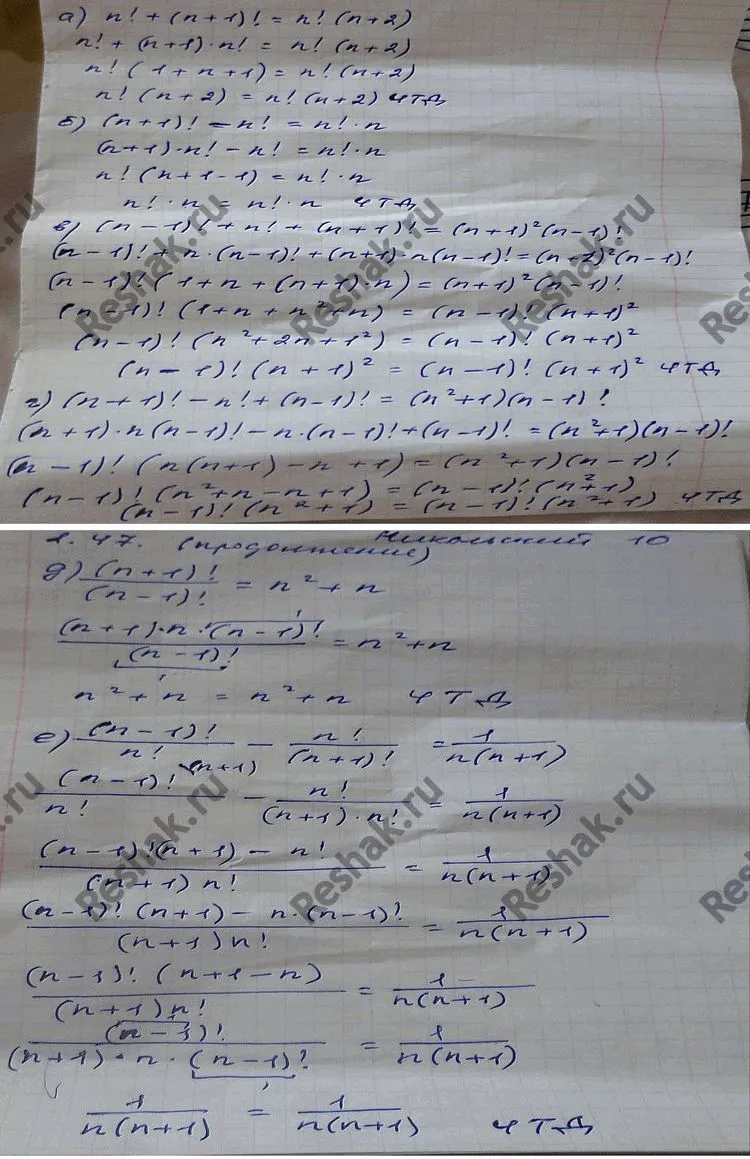 а) n! + (n+1)! = n! (n+2)
n! + (n+1)·n! = n! (n+2)
n! (1+n+1) = n! (n+2)
n! (n+2) = n! (n+2) ЧТД
б) (n+1)! - n! = n!·n
(n+1)·n! - n! = n!·n
n! (n+1-1) = n!·n
n!·n = n!·n ЧТД
в) (n-1)! + n! + (n+1)! = (n+1)²(n-1)!
(n-1)! + n·(n-1)! + (n+1)·n(n-1)! = (n+1)²(n-1)!
(n-1)! (1+n+(n+1)·n) = (n+1)²(n-1)!
(n-1)! (1+n+n²+n) = (n-1)! (n+1)²
(n-1)! (n²+2n+1²) = (n-1)! (n+1)²
(n-1)! (n+1)² = (n-1)! (n+1)² ЧТД
г) (n+1)! - n! + (n-1)! = (n²+1)(n-1)!
(n+1)·n(n-1)! - n·(n-1)! + (n-1)! = (n²+1)(n-1)!
(n-1)! (n(n+1)-n+1) = (n²+1)(n-1)!
(n-1)! (n²+n-n+1) = (n-1)! (n²+1)
(n-1)! (n²+1) = (n-1)! (n²+1) ЧТД
1.47. (продолжение) Никольский 10
д) (n+1)! / (n-1)! = n²+n
(n+1)·n·(n-1)! / (n-1)! = n²+n
n²+n = n²+n ЧТД
е) (n-1)! / n! - n! / (n+1)! = 1 / n(n+1)
(n-1)! (n+1) / n! - n! / (n+1)·n! = 1 / n(n+1)
(n-1)!(n+1) - n! / (n+1)n! = 1 / n(n+1)
(n-1)! (n+1) - n·(n-1)! / (n+1)n! = 1 / n(n+1)
(n-1)! (n+1-n) / (n+1)n! = 1 / n(n+1)
(n-1)! / (n+1)·n·(n-1)! = 1 / n(n+1)
1 / n(n+1) = 1 / n(n+1) ЧТД
Reshak.ru
Reshak.ru
Reshak.ru
Reshak.ru
Reshak.ru
Reshak.ru